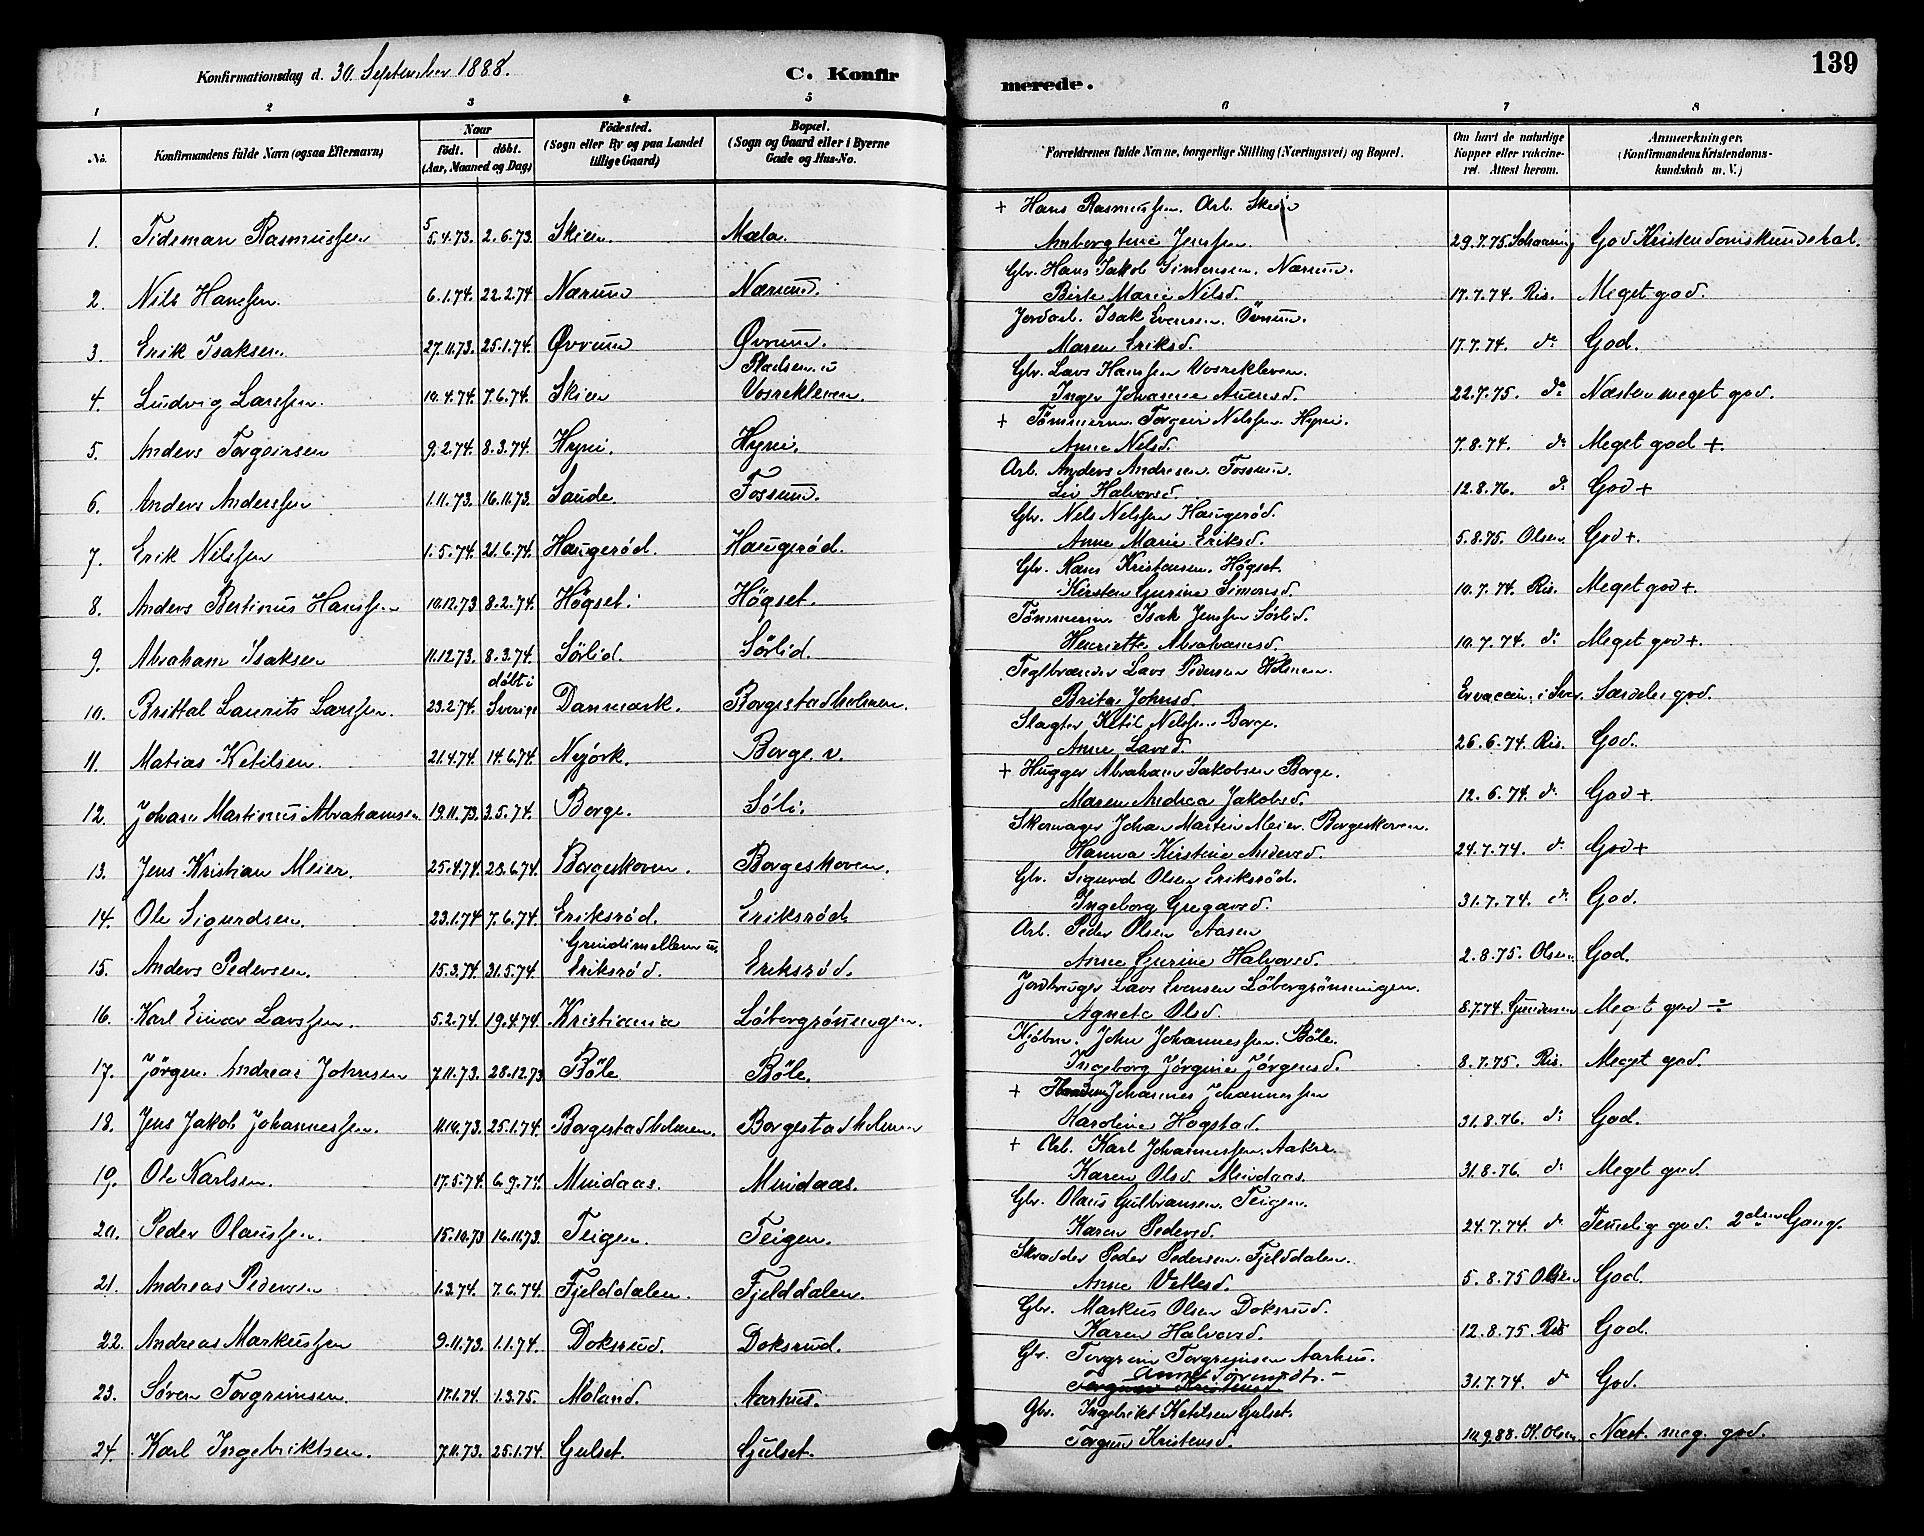 139
Konfirmationsdag d. 30. September 1888.
C. Konfirmerede.
1 2 3 4 5 6 7 8
No. Konfirmandens fulde Navn (ogsaa Efternavn) Naar født. døbt. (Aar, Maaned og Dag) Fødested. (Sogn eller By og paa Landet tillige Gaard) Bopæl. (Sogn og Gaard eller i Byerne Gade og Hus-No. Forældrenes fulde Navne, borgerlige Stilling (Næringsvei) og Bopæl. Om havt de naturlige Kopper eller vakcineret. Attest herom. Anmærkninger. (Konfirmandens Kristendomskundskab m. V.)
+ Hans Rasmussen. Arb. Skien
1. Tideman Rasmussen 5.4.73. 2.6.73. Skien. Mæla. Amborgtine Jenssen. 29.7.75. Schaaning God Kristendomskundskab.
Gbr. Hans Jakob Simonsen. Nærum.
2. Nils Hanssen. 6.1.74. 22.2.74 Nærum Nærum. Birte Marie Nilsd. 17.7.74. Ris. Meget god.
Jordarb. Isak Evensen. Övrum.
3. Erik Isaksen. 27.11.73. 25.1.74. Øvrum Øvrum. Maren Eriksd. 17.7.74. do God.
Gbr. Lars Hanssen Vosrekleven.
4. Ludvig Larssen. 10.4.74. 7.6.74. Skien Pladsen u Vosrekleven. Inger Johanne Auensd. 22.7.75. do Næsten meget god.
+ Tömmerm. Torgeir Nilssen. Hyni.
5. Anders Torgeirsen 9.2.74. 8.3.74. Hyni. Hyni. Anne Nilsd. 7.8.74. do Meget god +
Arb. Anders Andresen. Fossum.
6. Anders Anderssen 1.11.73. 16.11.73. Saude. Fossum. Liv Halvorsd. 12.8.76. do God +
Gbr. Nils Nilssen Haugerød.
7. Erik Nilssen 1.5.74. 21.6.74. Haugerød. Haugerød. Anne Marie Eriksd. 5.8.75. Olsen God +.
Gbr. Hans Kristensen. Högset.
8. Anders Bertinus Hanssen 10.12.73 8.2.74. Högset. Högset. Kirsten Gurine Simonsd. 10.7.74. Ris. Meget god +.
Tömmerm. Isak Jenssen Sørlid.
9. Abraham Isaksen 11.12.73. 8.3.74. Sörlid. Sörlid. Henriette Abrahamsd. 10.7.74. do Meget god +.
Teglbrænder Lars Pedersen Holmen.
10. Brittal Laurits Larssen. 23.2.74. døbt i Sverige Danmark. Borgestadholmen. Brita Johnsd. Er vaccin. i Sver. Særdeles god.
Slagter Ketil Nilssen. Borge.
11. Matias Ketilsen. 21.4.74. 14.6.74. Nejörk. Borge. v. Anne Larsd. 26.6.74. Ris. God.
+ Hugger Abraham Jakobsen Borge.
12. Johan Martinus Abrahamsen 19.11.73 3.5.74. Borge. Söli. Maren Andrea Jakobsd. 12.6.74. do God +
Skomager Johan Martin Meier. Borgeskoven.
13. Jens Kristian Meier. 25.4.74 28.6.74. Borgeskoven. Borgeskoven. Hanna Kirstine Andersd. 24.7.74. do God +
Gbr. Sigurd Olsen Eriksrød.
14. Ole Sigurdsen. 23.1.74 7.6.74. Eriksrød. Eriksrød. Ingeborg Gregarsd. 31.7.74. do God.
Arb. Peder Olsen Aasen
15. Anders Pedersen. 15.3.74 31.5.74. Grindimellem u. Eriksrød. Eriksrød. Anne Gurine Halvorsd. 2.8.75. Olsen God.
Jordbruger Lars Evensen Löbergrönningen.
16. Karl Einar Larssen. 5.2.74. 19.4.74. Kristiania Löbergrönningen. Agnete Olsd. 8.7.74. Gundersen Meget god ÷
Kjöbm. John Johannessen. Böle.
17. Jørgen Andreas Johnsen 7.11.73. 28.12.73 Böle Böle. Ingeborg Jørgine Jørgensd. 8.7.75. Ris. Meget god.
+ Johannes Johannessen
18. Jens Jakob Johannessen. 11.10.73. 25.1.74. Borgestadholmen. Borgestadholmen Karoline Hogstad. 31.8.76. do God.
+ Arb. Karl Johannessen. Aakre.
19. Ole Karlsen. 17.5.74 6.9.74. Mindaas. Mindaas. Karen Olsd. Mindaas. 31.8.76 do Meget god.
Gbr. Olaus Gulbransen. Teigen.
20. Peder Olaussen. 15.10.73 16.11.73. Teigen. Teigen. Karen Pedersd. 24.7.74. do Temelig god. 2den Gang.
Skrædder Peder Pedersen. Fjelddalen.
21. Andreas Pedersen 1.3.74. 7.6.74. Fjelddalen. Fjelddalen. Anne Vetlesd. 5.8.75 Olsen God.
Gbr. Markus Olsen Doksrud.
22. Andreas Markussen 9.11.73. 1.1.74. Doksrud. Doksrud. Karen Halvorsd. 12.8.75. Ris God.
Gbr. Torgrim Torgrimsen Aarhus.
23. Søren Torgrimsen. 17.1.74 1.3.75. Moland. Aarhus. Torgun Kristensd. 31.7.74. do God.
Gbr. Ingebrikt Ketilsen Gulset.
24. Karl Ingebriktsen. 7.11.73. 25.1.74. Gulset. Gulset. Torgun Kristensd. 10.9.88. K. Olsen. Næst. meg. god.